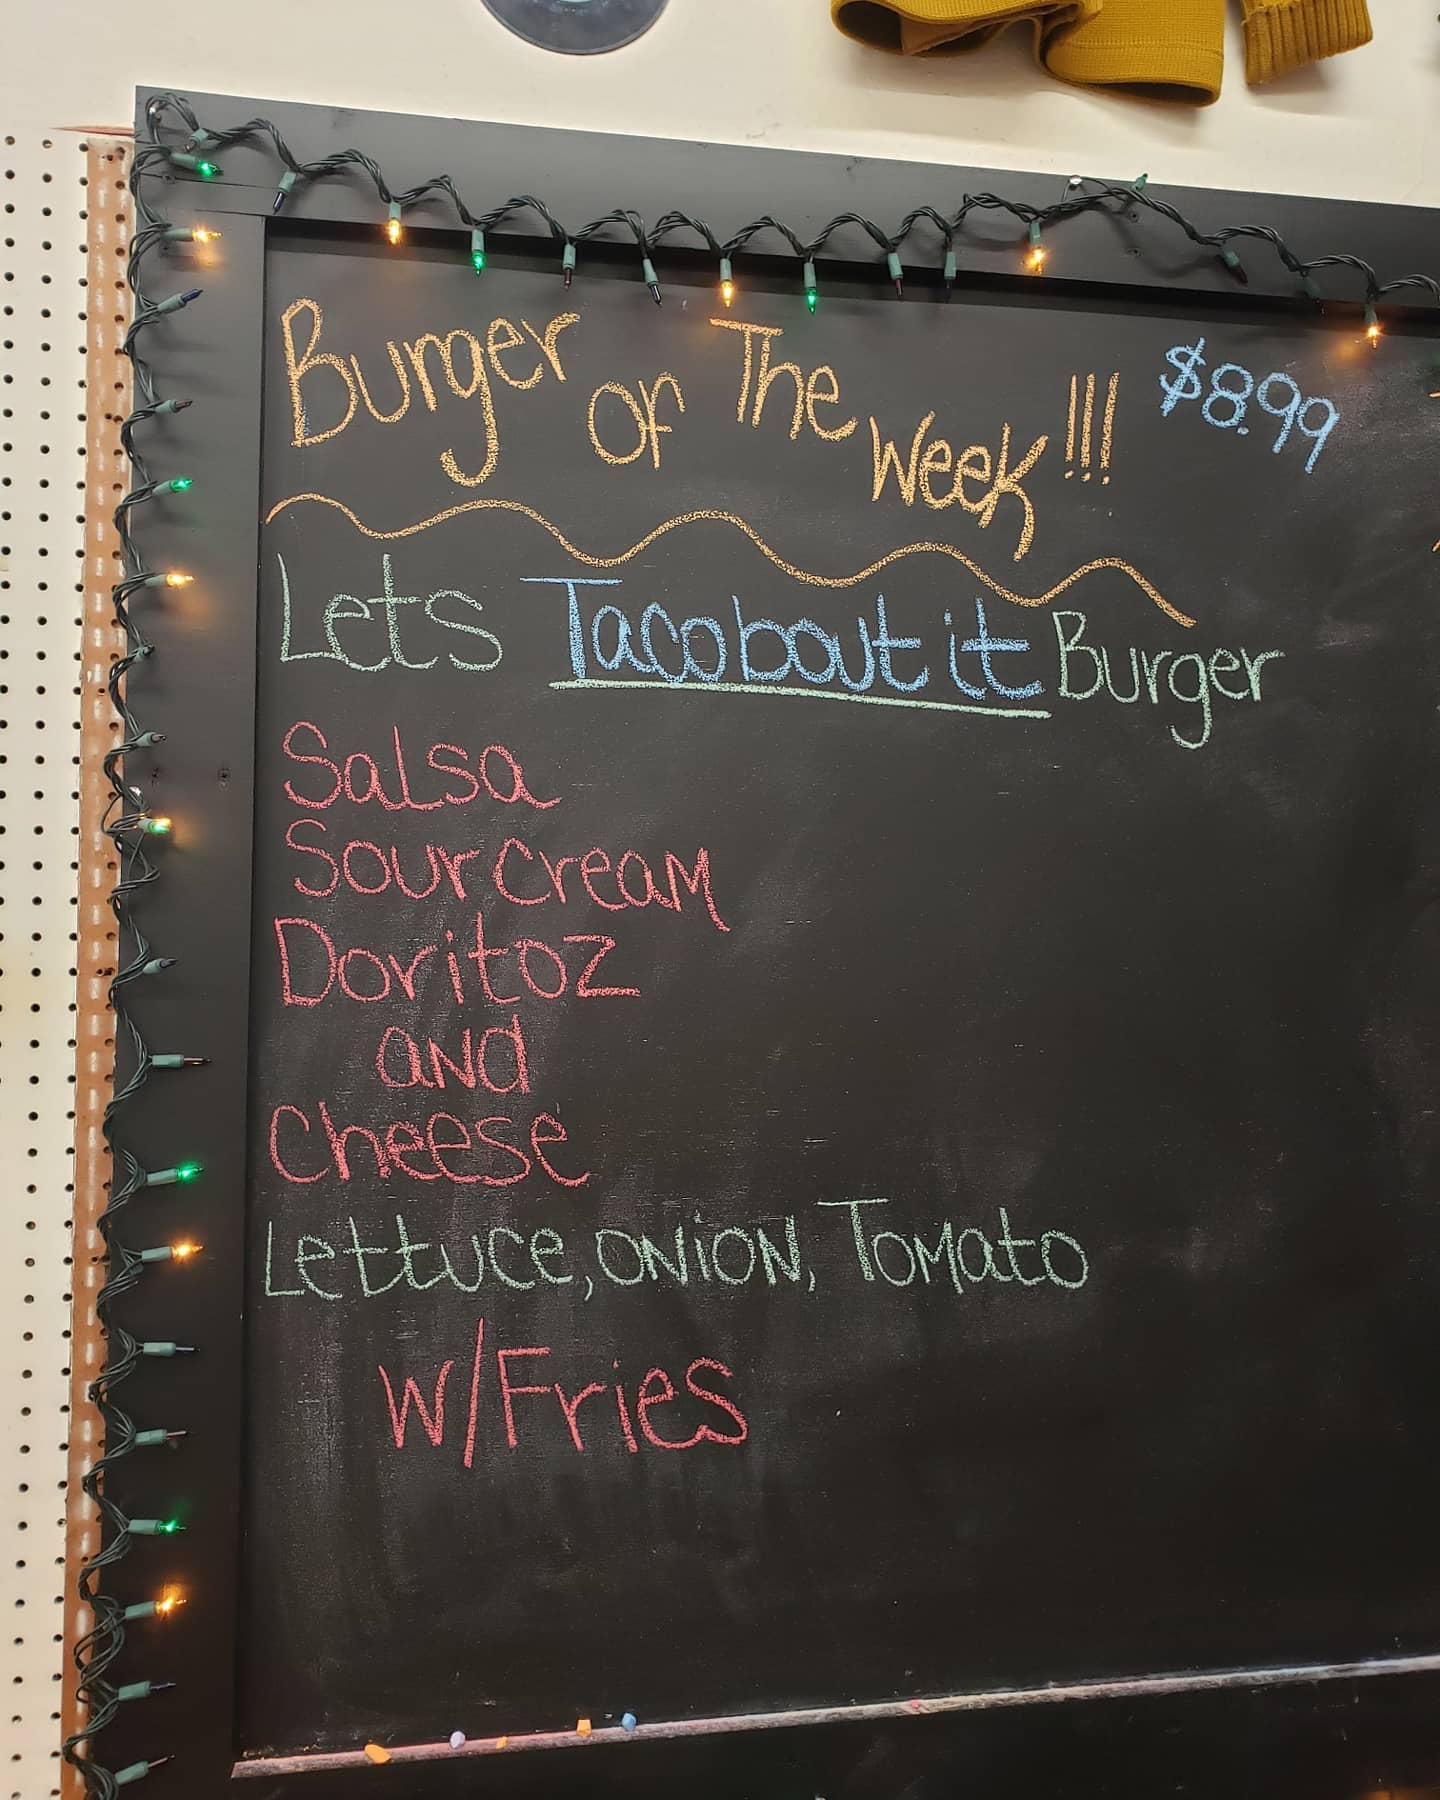 Burger of The Week!!! $8.99
Lets Tacobout it Burger
Salsa
Sour cream
Doritoz
and
Cheese
Lettuce, onion, Tomato
w/Fries